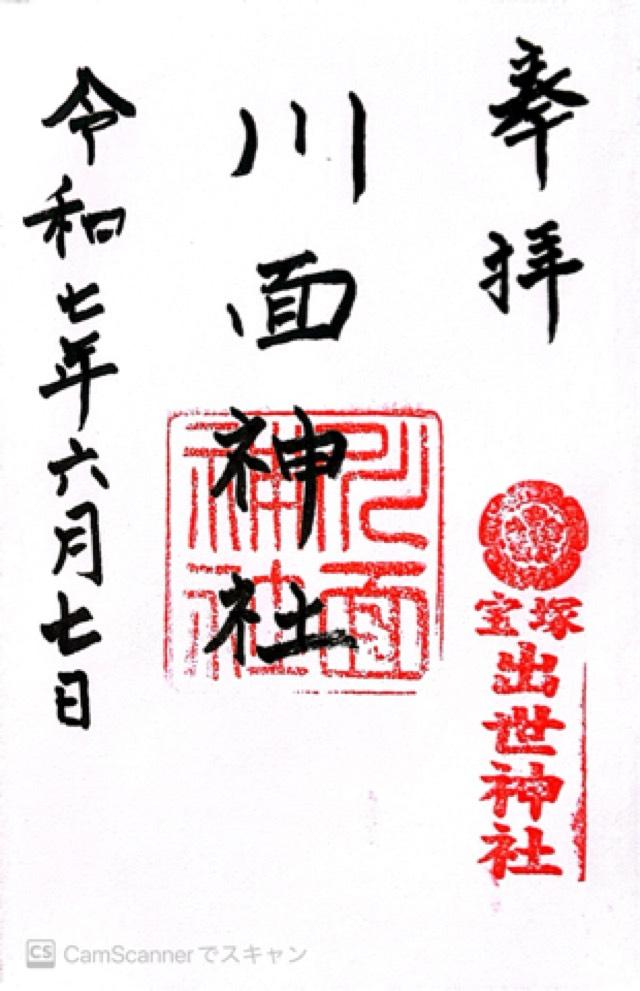 奉拝
宝塚
出世神社
川面神社
川面
神社
令和七年六月七日
CS CamScannerでスキャン